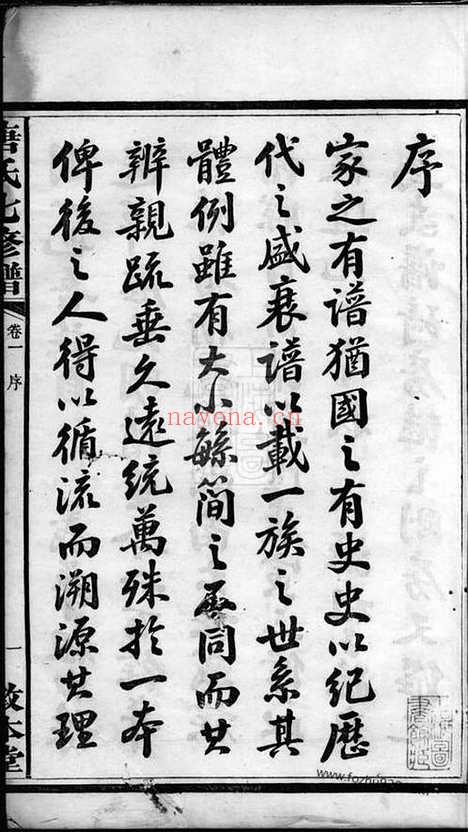 序
家之有譜猶國之有史史以紀歷
代之盛衰譜以載一族之世系其
體例雖有大小繇簡之不同而其
辨親疏垂久遠統萬殊於一本
俾後之人得以循流而溯源其理
唐氏七修譜
卷一 序
一
敦本堂
nayona.cn